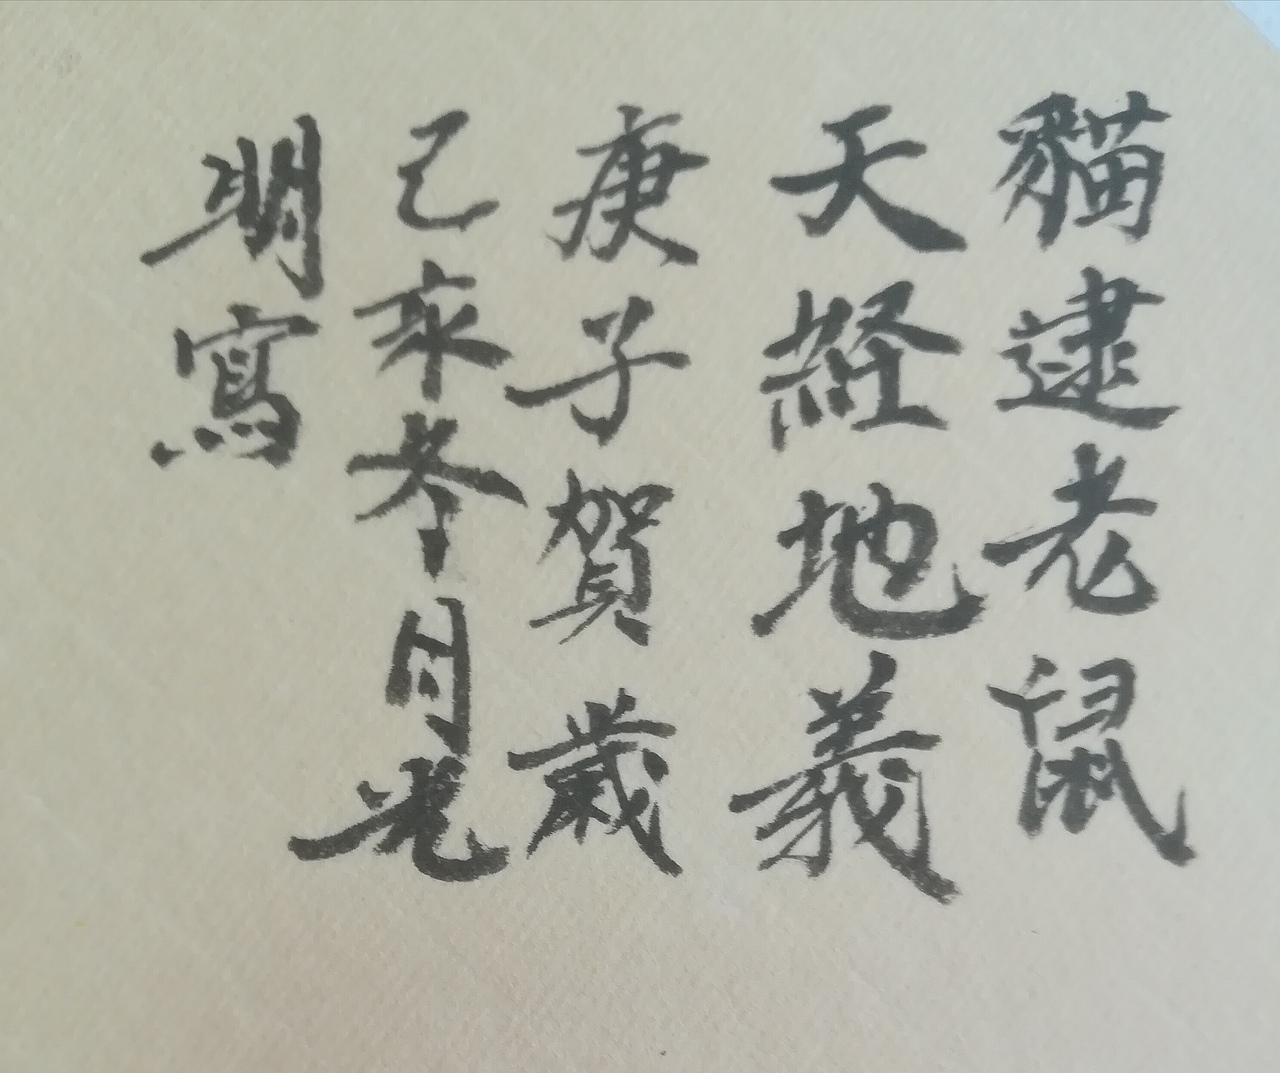 貓逮老鼠
天経地義
庚子賀歲
己亥冬月光
明寫